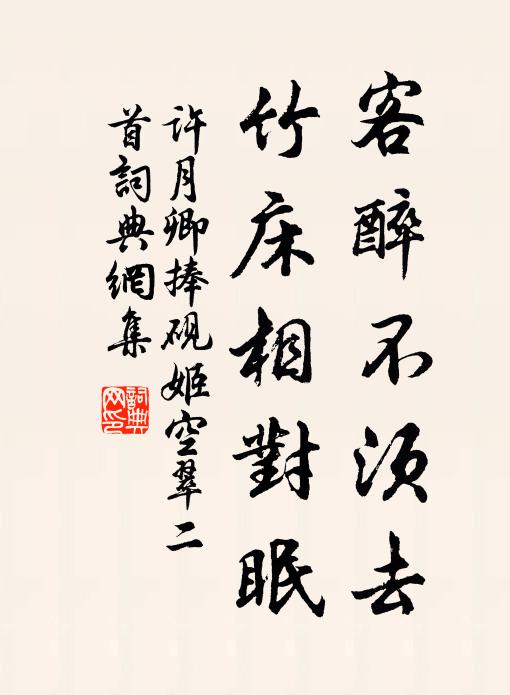 客醉不須去
竹床相對眠
許月卿捧硯姬空翠二
首詞典網集
詞典
网印